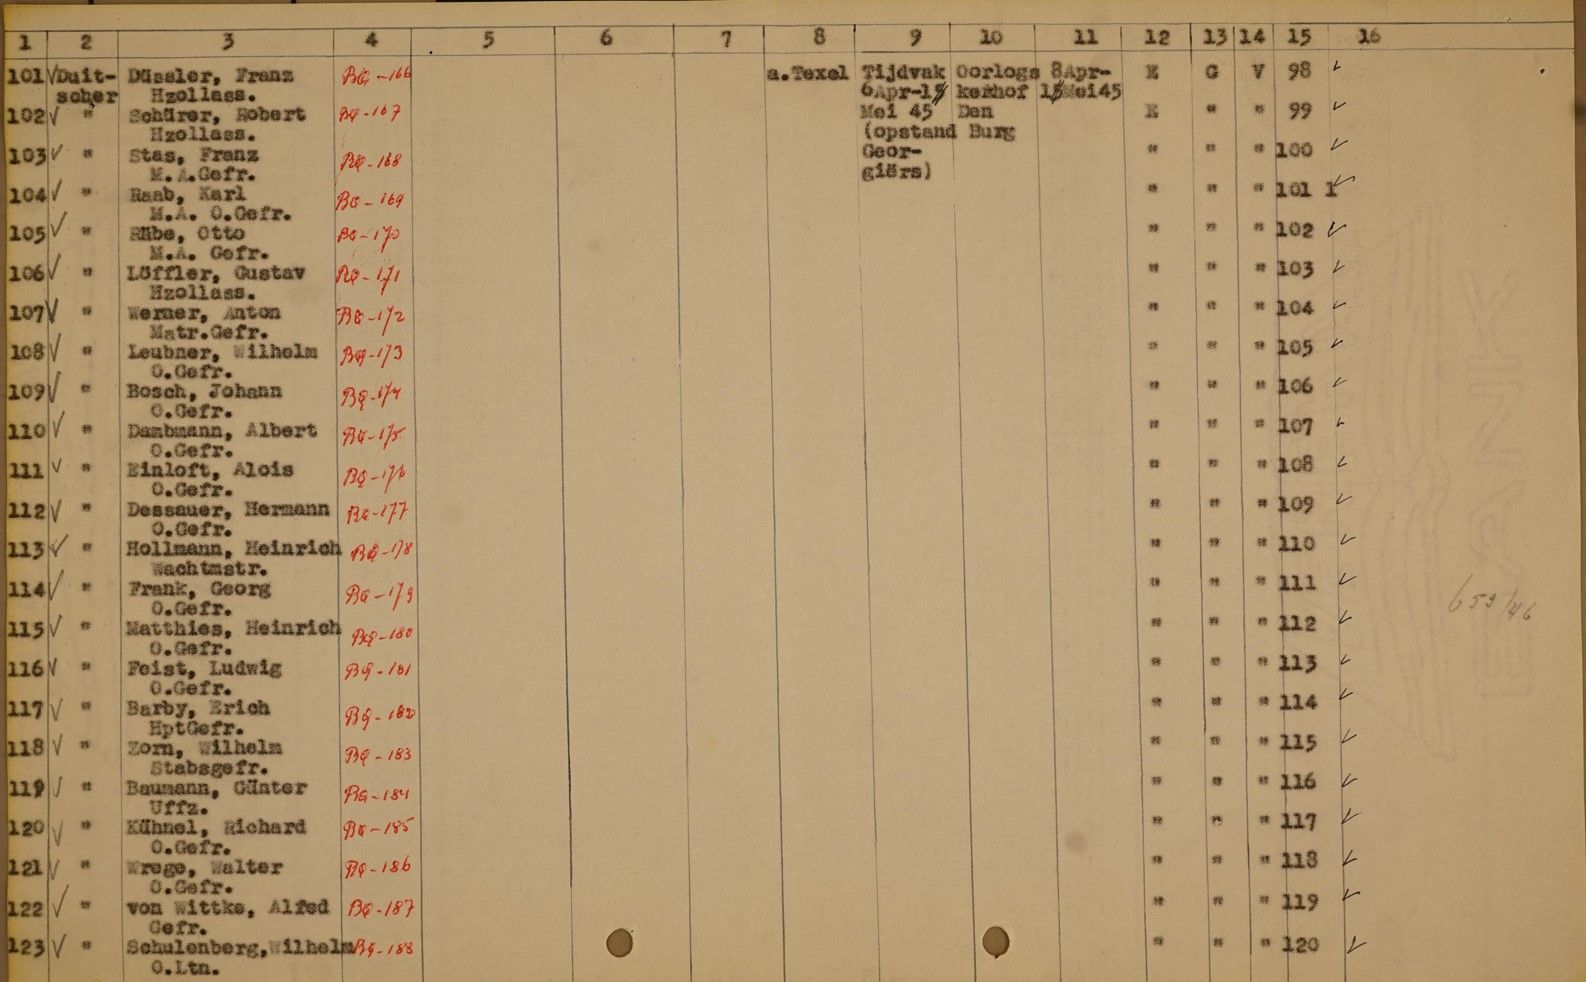 1 2 3 4 5 6 7 8 9 10 11 12 13 14 15 16
101 √ Duit- Düssler, Franz BQ-166 a.Texel Tijdvak Oorlogs 8Apr- E G V 98 √
scher Hzollass. 6Apr-15 kerkhof 15Mei45
102 √ " Schürer, Robert BQ-167 Mei 45 Den E " " 99 √
Hzollass. (opstand Burg
103 √ " Stas, Franz BQ-168 Geor- " " " 100 √
M.A.Gefr. giërs)
104 √ " Raab, Karl BQ-169 " " " 101 1 √
M.A. O.Gefr.
105 √ " Rübe, Otto BQ-170 " " " 102 √
M.A. Gefr.
106 √ " Löffler, Gustav BQ-171 " " " 103 √
Hzollass.
107 √ " Werner, Anton BQ-172 " " " 104 √
Matr.Gefr.
108 √ " Leubner, Wilhelm BQ-173 " " " 105 √
O.Gefr.
109 √ " Bosch, Johann BQ-174 " " " 106 √
O.Gefr.
110 √ " Dambmann, Albert BQ-175 " " " 107 √
O.Gefr.
111 √ " Einloft, Alois BQ-176 " " " 108 √
O.Gefr.
112 √ " Dessauer, Hermann BQ-177 " " " 109 √
O.Gefr.
113 √ " Hollmann, Heinrich BQ-178 " " " 110 √
Wachtmstr.
114 √ " Frank, Georg BQ-179 " " " 111 √
O.Gefr. 653/46
115 √ " Matthies, Heinrich BQ-180 " " " 112 √
O.Gefr.
116 √ " Feist, Ludwig BQ-181 " " " 113 √
O.Gefr.
117 √ " Barby, Erich BQ-182 " " " 114 √
HptGefr.
118 √ " Zorn, Wilhelm BQ-183 " " " 115 √
Stabsgefr.
119 √ " Baumann, Günter BQ-184 " " " 116 √
Uffz.
120 √ " Kühnel, Richard BQ-185 " " " 117 √
O.Gefr.
121 √ " Wrege, Walter BQ-186 " " " 118 √
O.Gefr.
122 √ " von Wittke, Alfed BQ-187 " " " 119 √
Gefr.
123 √ " Schulenberg,Wilhelm BQ-188 " " " 120 √
O.Ltn.